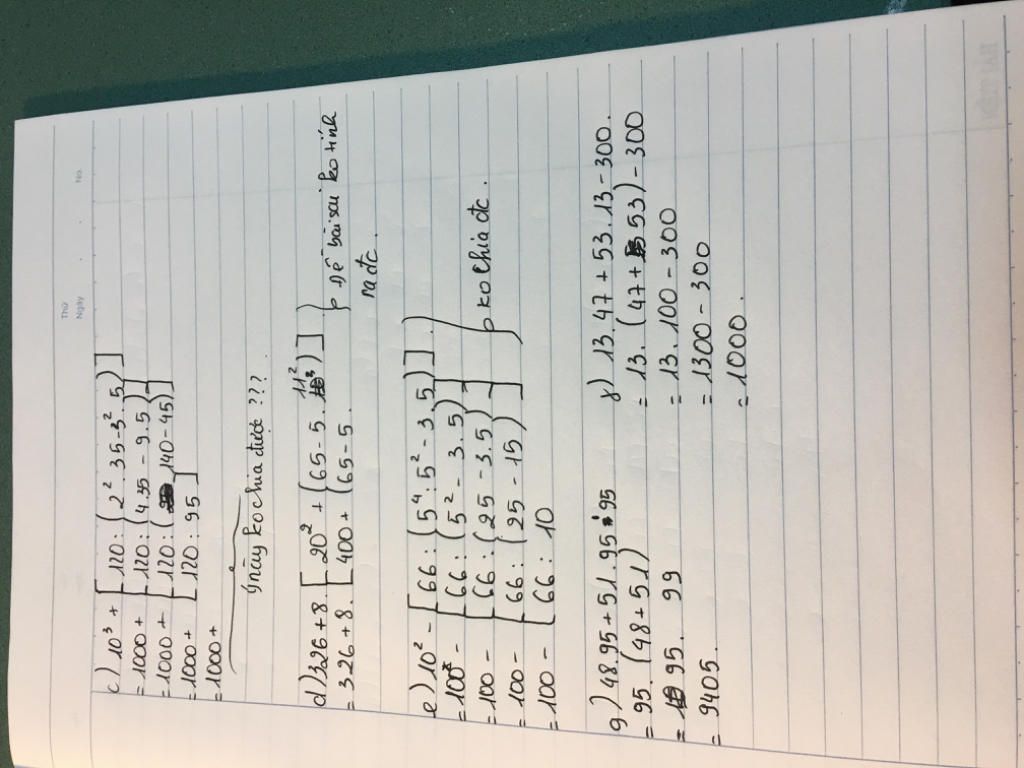 Thứ
Ngày No.
c) 10³ + [120 : (2². 35-3². 5)]
= 1000 + [120 : (4.35 - 9.5)]
= 1000 + [120 : (140-45)]
= 1000 + [120 : 95]
= 1000 +
ý này ko chia được ???
d) 326 + 8. [20² + (65 - 5. 11²)] Đề bài sai ko tính
= 326 + 8. [400 + (65 - 5. ra đc.
e) 10² - [66 : (5⁴ : 5² - 3.5)]
= 100 - [66 : (5² - 3.5)]
= 100 - [66 : (25 - 3.5)] ko chia đc.
= 100 - [66 : (25 - 15)]
= 100 - [66 : 10
g) 48.95 + 51.95 : 95
= 95. (48 + 51)
= 95. 99
= 9405.
γ) 13.47 + 53.13 - 300.
= 13. (47 + 53) - 300
= 13. 100 - 300
= 1300 - 300
= 1000.